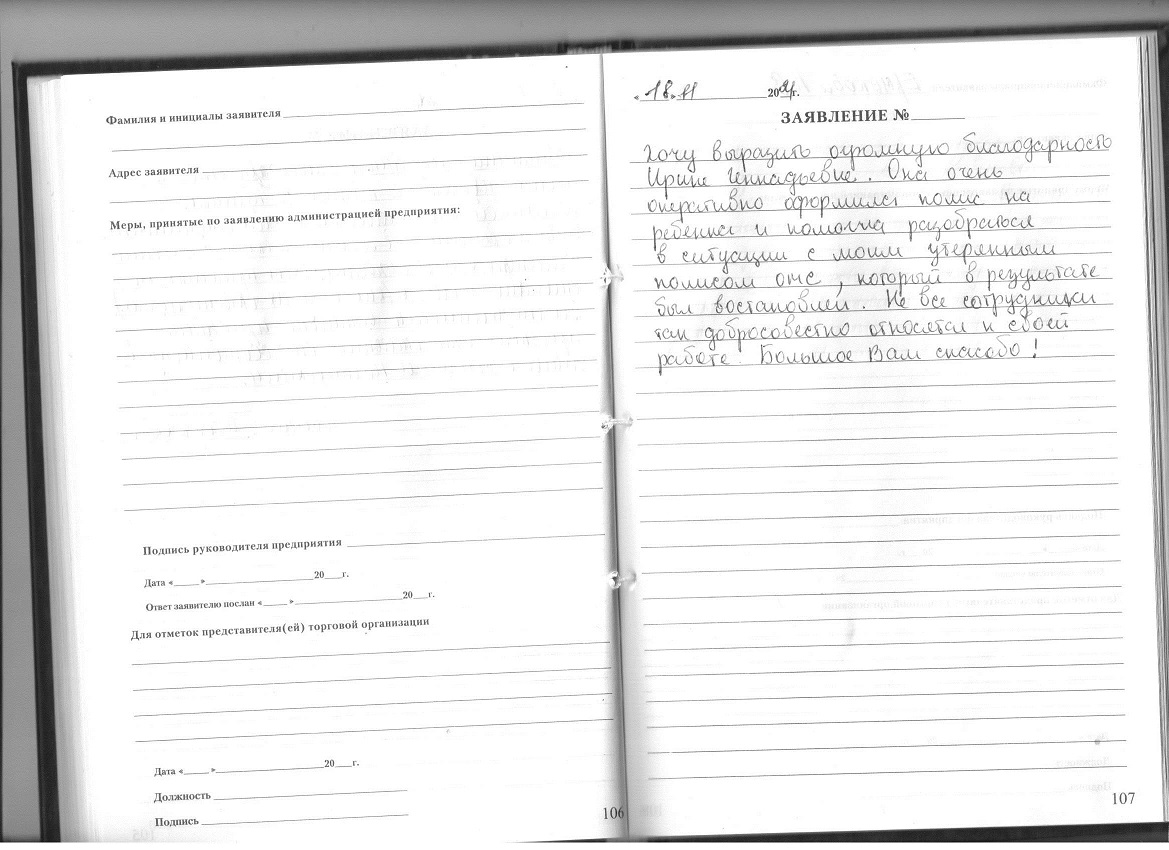 Фамилия и инициалы заявителя
Адрес заявителя
Меры, принятые по заявлению администрацией предприятия:
Подпись руководителя предприятия
Дата «____»____________________20___г.
Ответ заявителю послан «____»____________________20___г.
Для отметок представителя(ей) торговой организации
Дата «____»____________________20___г.
Должность
Подпись
106
«18» 11 2021г.
ЗАЯВЛЕНИЕ №______
Хочу выразить огромную благодарность
Ирине Геннадьевне. Она очень
оперативно оформила полис на
ребенка и помогла разобраться
в ситуации с моим утерянным
полисом омс, который в результате
был востановлен. Не все сотрудники
так добросовестно относятся к своей
работе. Большое Вам спасибо!
107